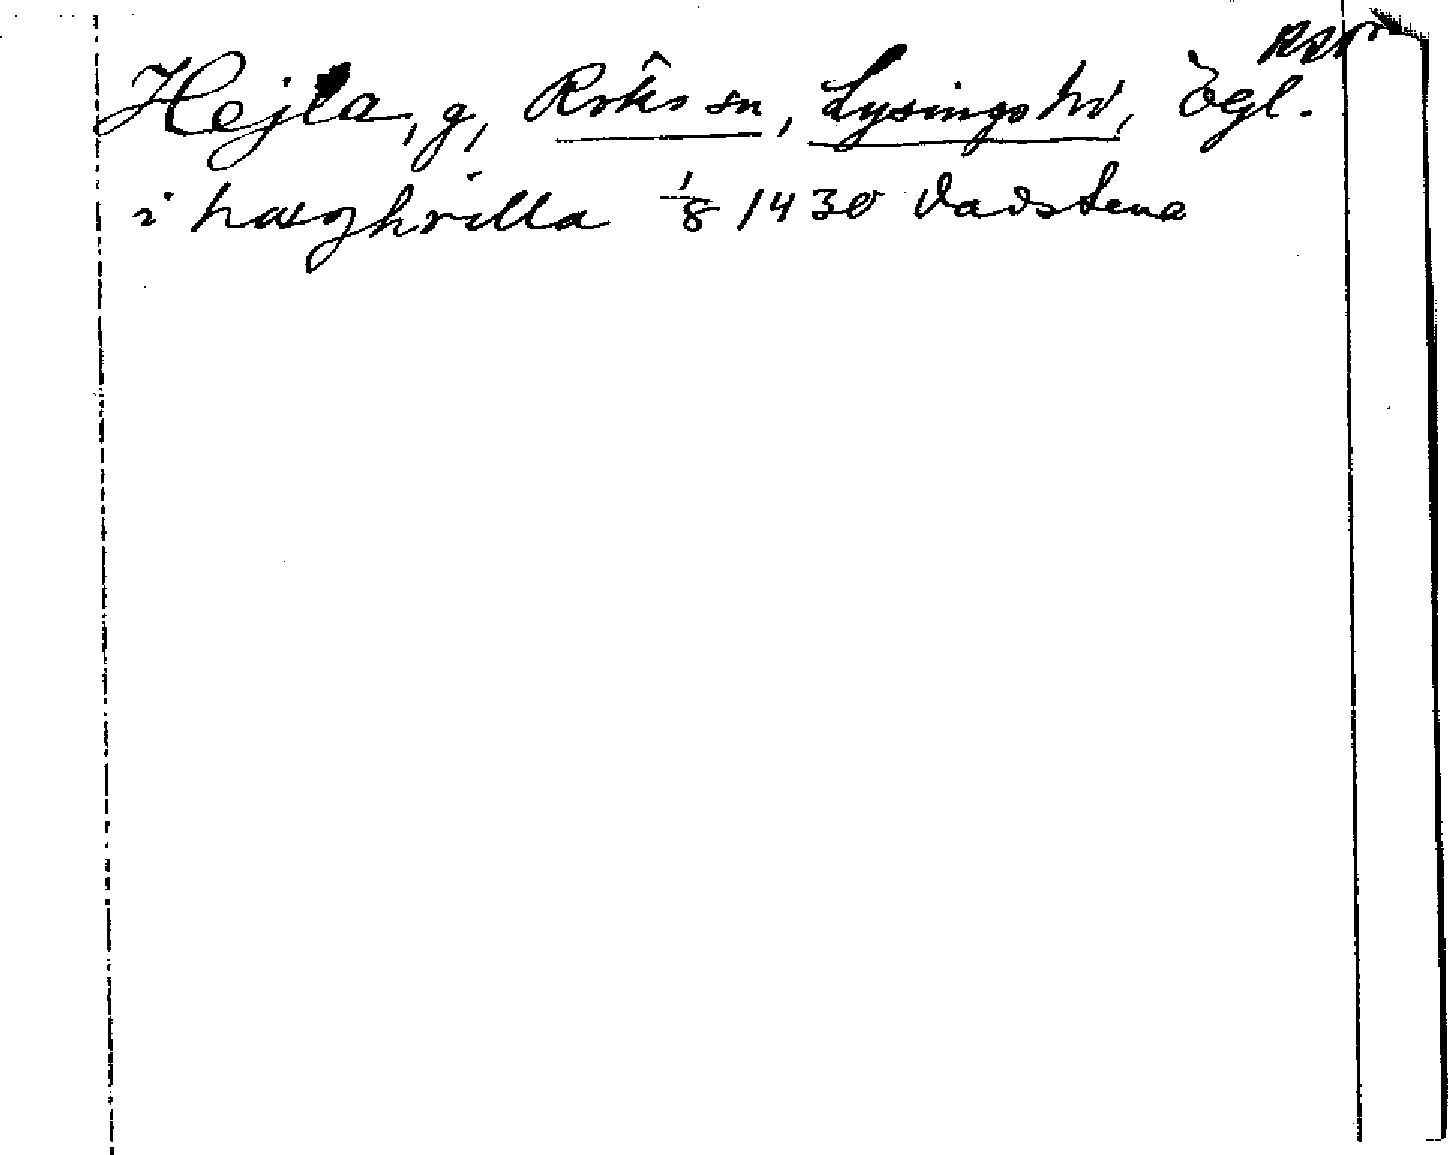 Hejla, g, Röks sn, Lysings hd, Ögl.
i hæghrilla 1/8 1430 Vadstena